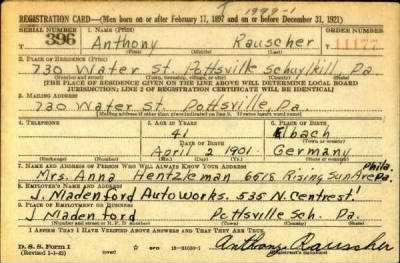 REGISTRATION CARD—(Men born on or after February 17, 1897 and on or before December 31, 1921)
SERIAL NUMBER 1. NAME (Print) ORDER NUMBER
396 Anthony Rauscher 11177
2. PLACE OF RESIDENCE (Print)
730 Water St. Pottsville Schuylkill Pa.
(Number and street) (Town, township, village, or city) (County) (State)
[THE PLACE OF RESIDENCE GIVEN ON THE LINE ABOVE WILL DETERMINE LOCAL BOARD
JURISDICTION; LINE 2 OF REGISTRATION CERTIFICATE WILL BE IDENTICAL]
3. MAILING ADDRESS
730 Water St. Pottsville, Pa.
[Mailing address if other than place indicated on line 2. If same insert word same]
4. TELEPHONE 5. AGE IN YEARS 6. PLACE OF BIRTH
41 Elbach
DATE OF BIRTH
April 2 1901. Germany
(Mo.) (Day) (Yr.)
7. NAME AND ADDRESS OF PERSON WHO WILL ALWAYS KNOW YOUR ADDRESS Phila.
Mrs. Anna Hentzleman 6618 Rising Sun Ave Pa.
8. EMPLOYER'S NAME AND ADDRESS
J. Madenford Auto Works. 535 N. Centre st.
9. PLACE OF EMPLOYMENT OR BUSINESS
J Madenford Pottsville Sch. Pa.
(Number and street or R. F. D. number) (Town) (County) (State)
I AFFIRM THAT I HAVE VERIFIED ABOVE ANSWERS AND THAT THEY ARE TRUE.
D. S. S. Form 1
Anthony Rauscher